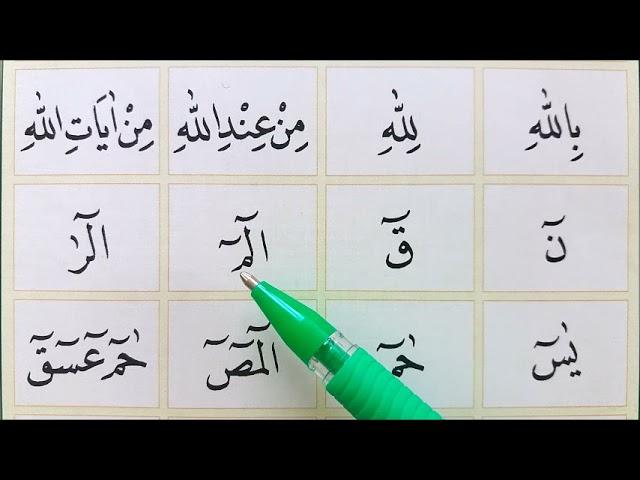 بِاللّٰهِ لِلّٰهِ مِنْ عِنْدِ اللّٰهِ مِنْ اٰيَاتِ اللّٰهِ
نٓ قٓ الٓمٓ الٓرٰ
يٰسٓ حٰمٓ الٓمٓصٓ حٰمٓ عٓسٓقٓ